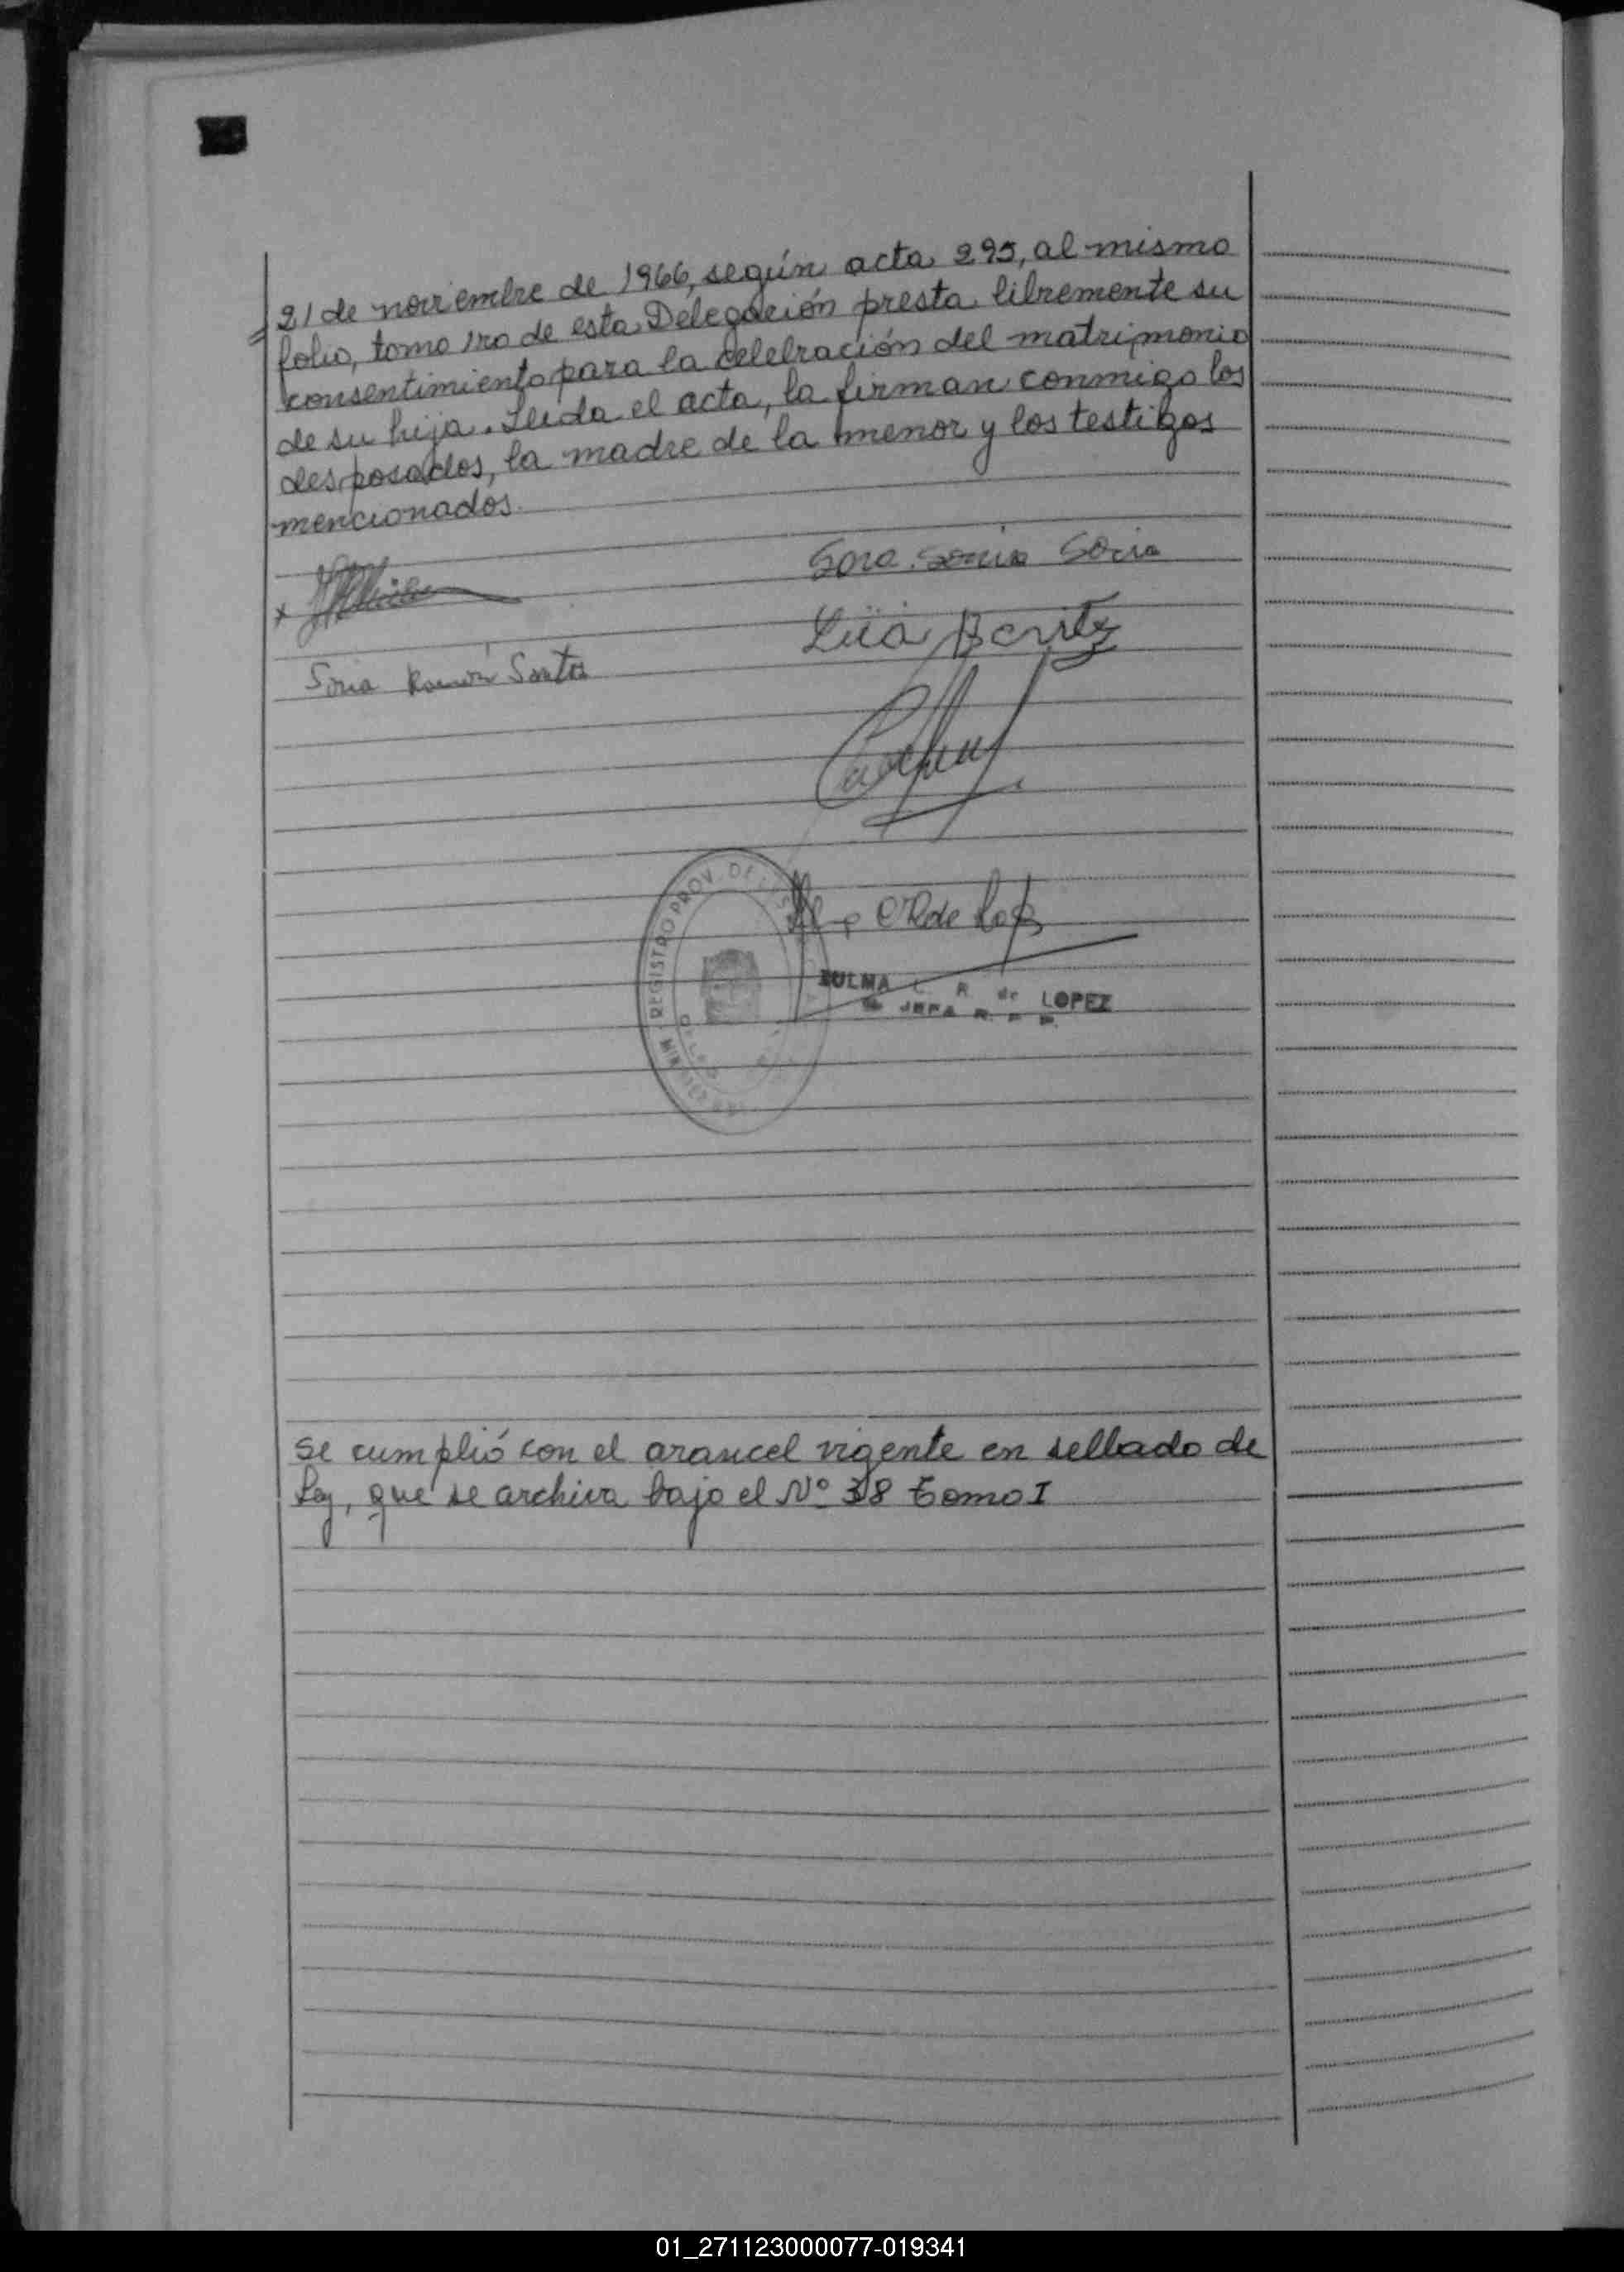 21 de noviembre de 1966, según acta 295, al mismo
folio, tomo 1ro de esta Delegación presta libremente su
consentimiento para la celebración del matrimonio
de su hija. Leida el acta, la firman conmigo los
desposados, la madre de la menor y los testigos
mencionados.
Sora Sonia Socia
x
Luia Benitez
Soria Ramón Santos
REGISTRO PROV. DE LAS
R de Lopez
ZULMA C. R. de LOPEZ
JEFA R. P. P.
se cumplió con el arancel vigente en sellado de
Ley, que se archiva bajo el Nº 38 Tomo I
01_271123000077-019341